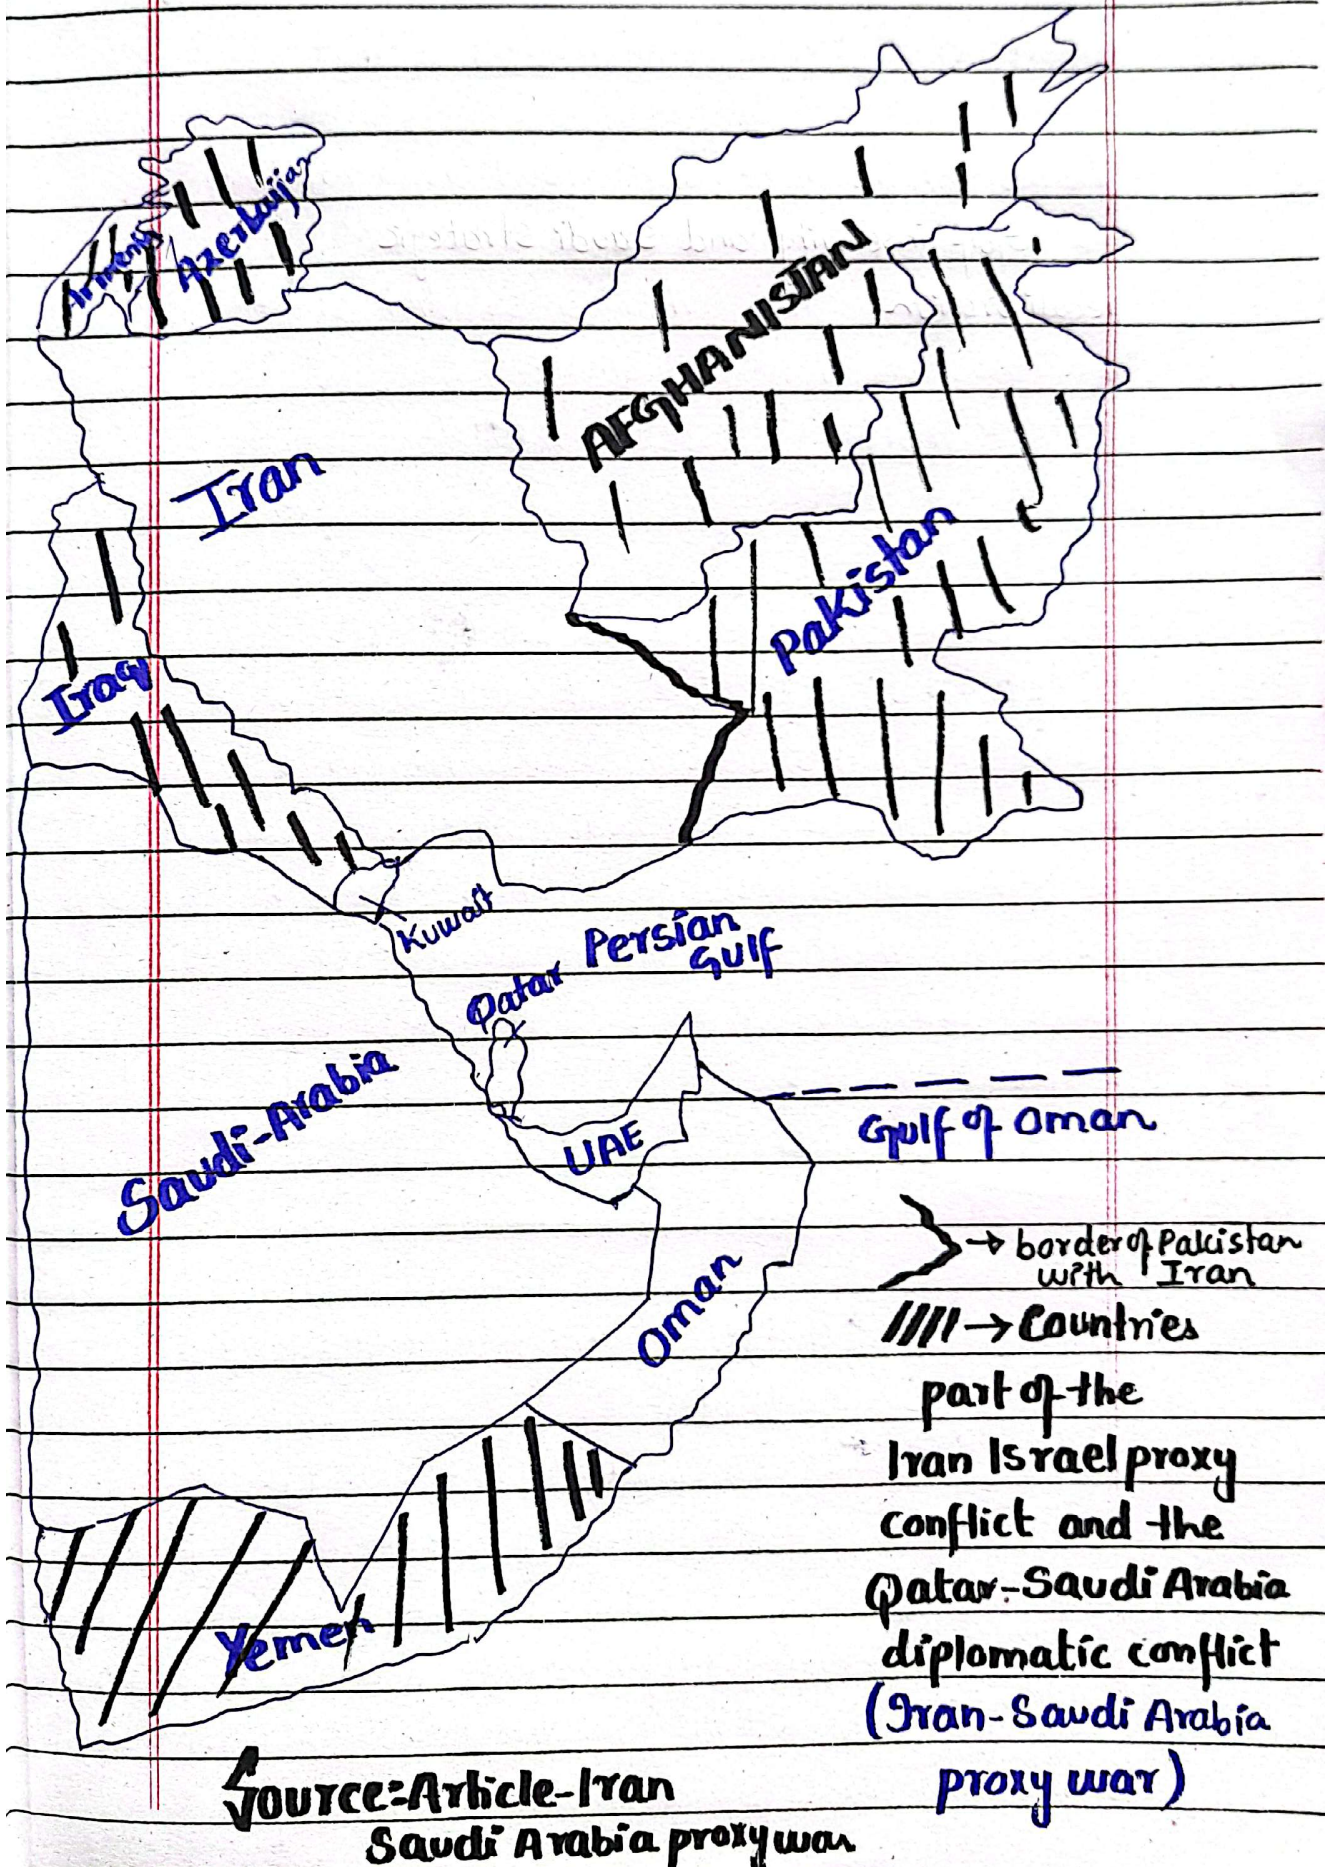 Armenia
Azerbaijan
AFGHANISTAN
Iran
Pakistan
Iraq
Kuwait
Persian
Gulf
Qatar
Saudi-Arabia
UAE
Gulf of Oman
Oman
Yemen
→ border of Pakistan
with Iran
→ Countries
part of the
Iran Israel proxy
conflict and the
Qatar-Saudi Arabia
diplomatic conflict
(Iran-Saudi Arabia
proxy war)
Source:-Article-Iran
Saudi Arabia proxy war